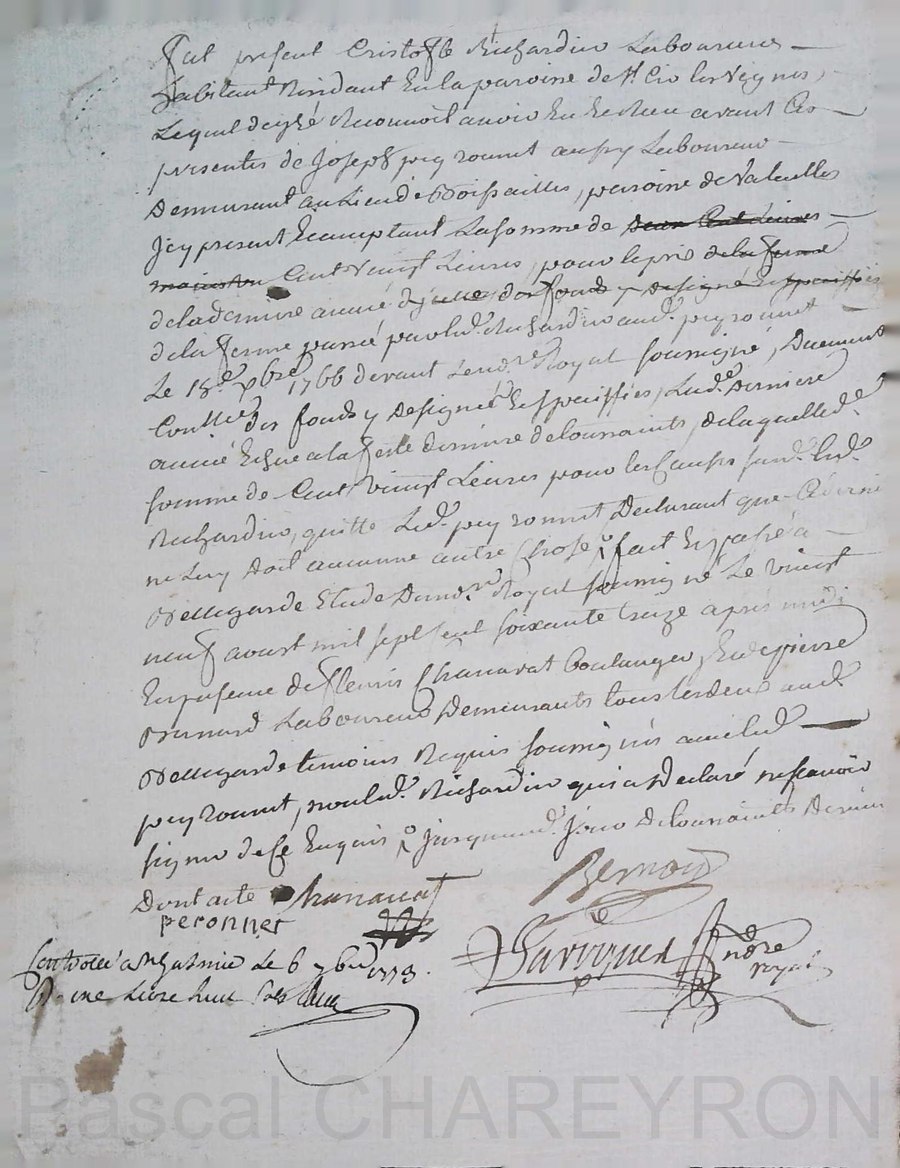 fut présent Cristofle Richardin Laboureur
habitant Résidant en la paroisse de St Cir les vignes,
Lequel de gré Reconnoit avoir Eu Et Recu avant Ces
présentes de Joseph peyronnet aussy Laboureur
Demeurant au Lieu de Boissailles, paroisse de Valeilles
Jcy présent Et acceptant La somme de deux Cent Livres
Cent Vingt Livres, pour le prix de la ferme
de la derniere année d'icelle des fonds y designés Et specifiés
de la ferme passée par led. Richardin aud. peyronnet
Le 18e 9bre 1766 devant Le nore Royal soussigné,
des fonds y designés Et specifiés, Lad. derniere
année Echue a la feste derniere de toussaints, de laquelle de.
somme de Cent Vingt Livres pour les Causes susd. led.
Richardin, quitte Led. peyronnet Declarant que Ce dernier
ne Luy doit aucunne autre Chose, fait Et passé a
Bellegarde Etude Du nore Royal soussigné Le vingt
neuf aoust mil sept Cent soixante treize après midi
En présence de fleuris Chanavat boulanger, Et de pierre
Laboureur Demeurants tous les deux aud.
Bellegarde temoins Requis soussignés avec led.
peyronnet, non led. Richardin qui a Declaré ne scavoir
signer de Ce Enquis jusquaud. jour De toussaints Dernier
Dont acte Chanavat
peronnet
Controllé a le 6 7bre 1773.
R. une Livre huit sols
nore
royal
Pascal CHAREYRON